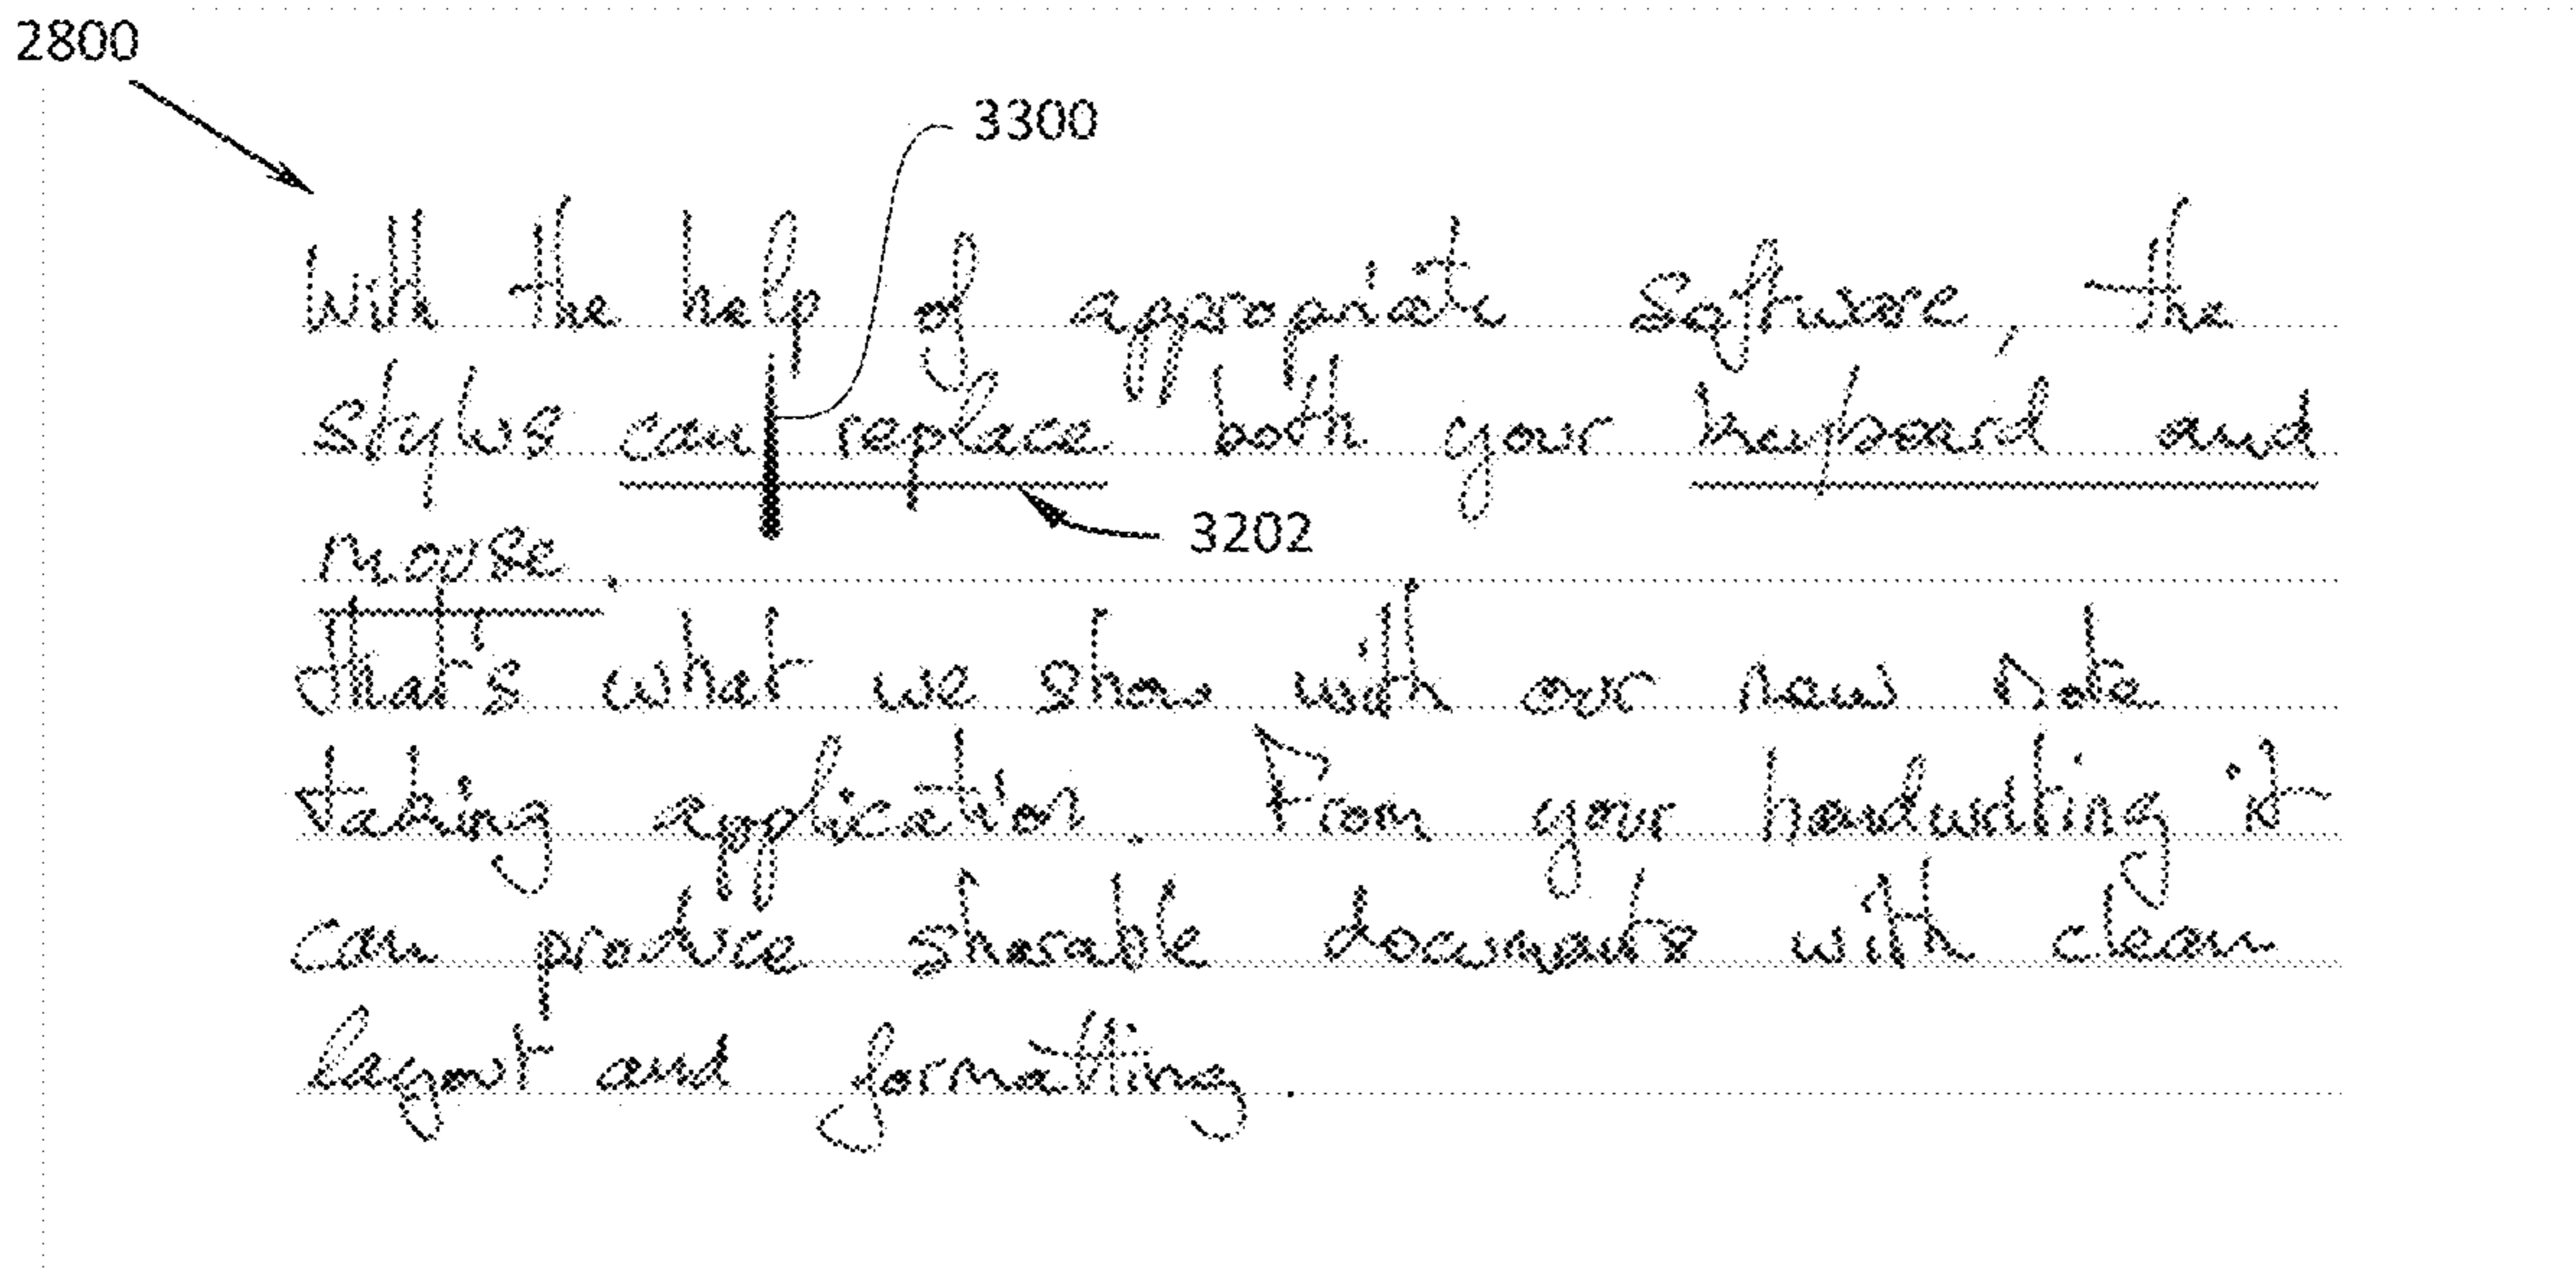 2800
3300
With the help of appropriate software, the
stylus can replace both your keyboard and
3202
mouse.
That's what we show with our new note
taking application. From your handwriting it
can produce sharable documents with clean
layout and formatting.